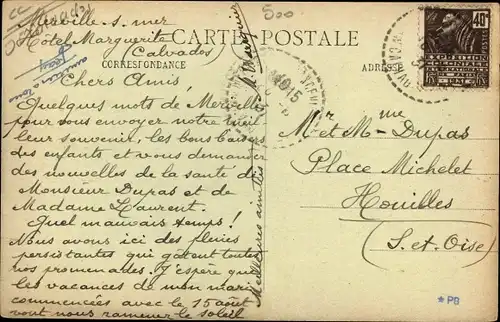 500
Merville-s-mer
Hôtel Marguerite
(Calvados)
CARTE POSTALE
CORRESPONDANCE
ADRESSE
40c
Chers Amis,
Quelques mots de Merville
pour vous envoyer notre meil
leur souvenir, les bons baisers
des enfants et vous demander
des nouvelles de la santé de
Monsieur Dupas et de
Madame Laurent.
Quel mauvais temps!
Nous avons ici des pluies
persistantes qui gâtent toutes
nos promenades. J'espère que
les vacances de mon mari
commencées avec le 15 août
vont nous ramener le soleil
Meilleures amitiés
Mr et Mme Dupas
Place Michelet
Houilles
(S. et Oise)
*PB